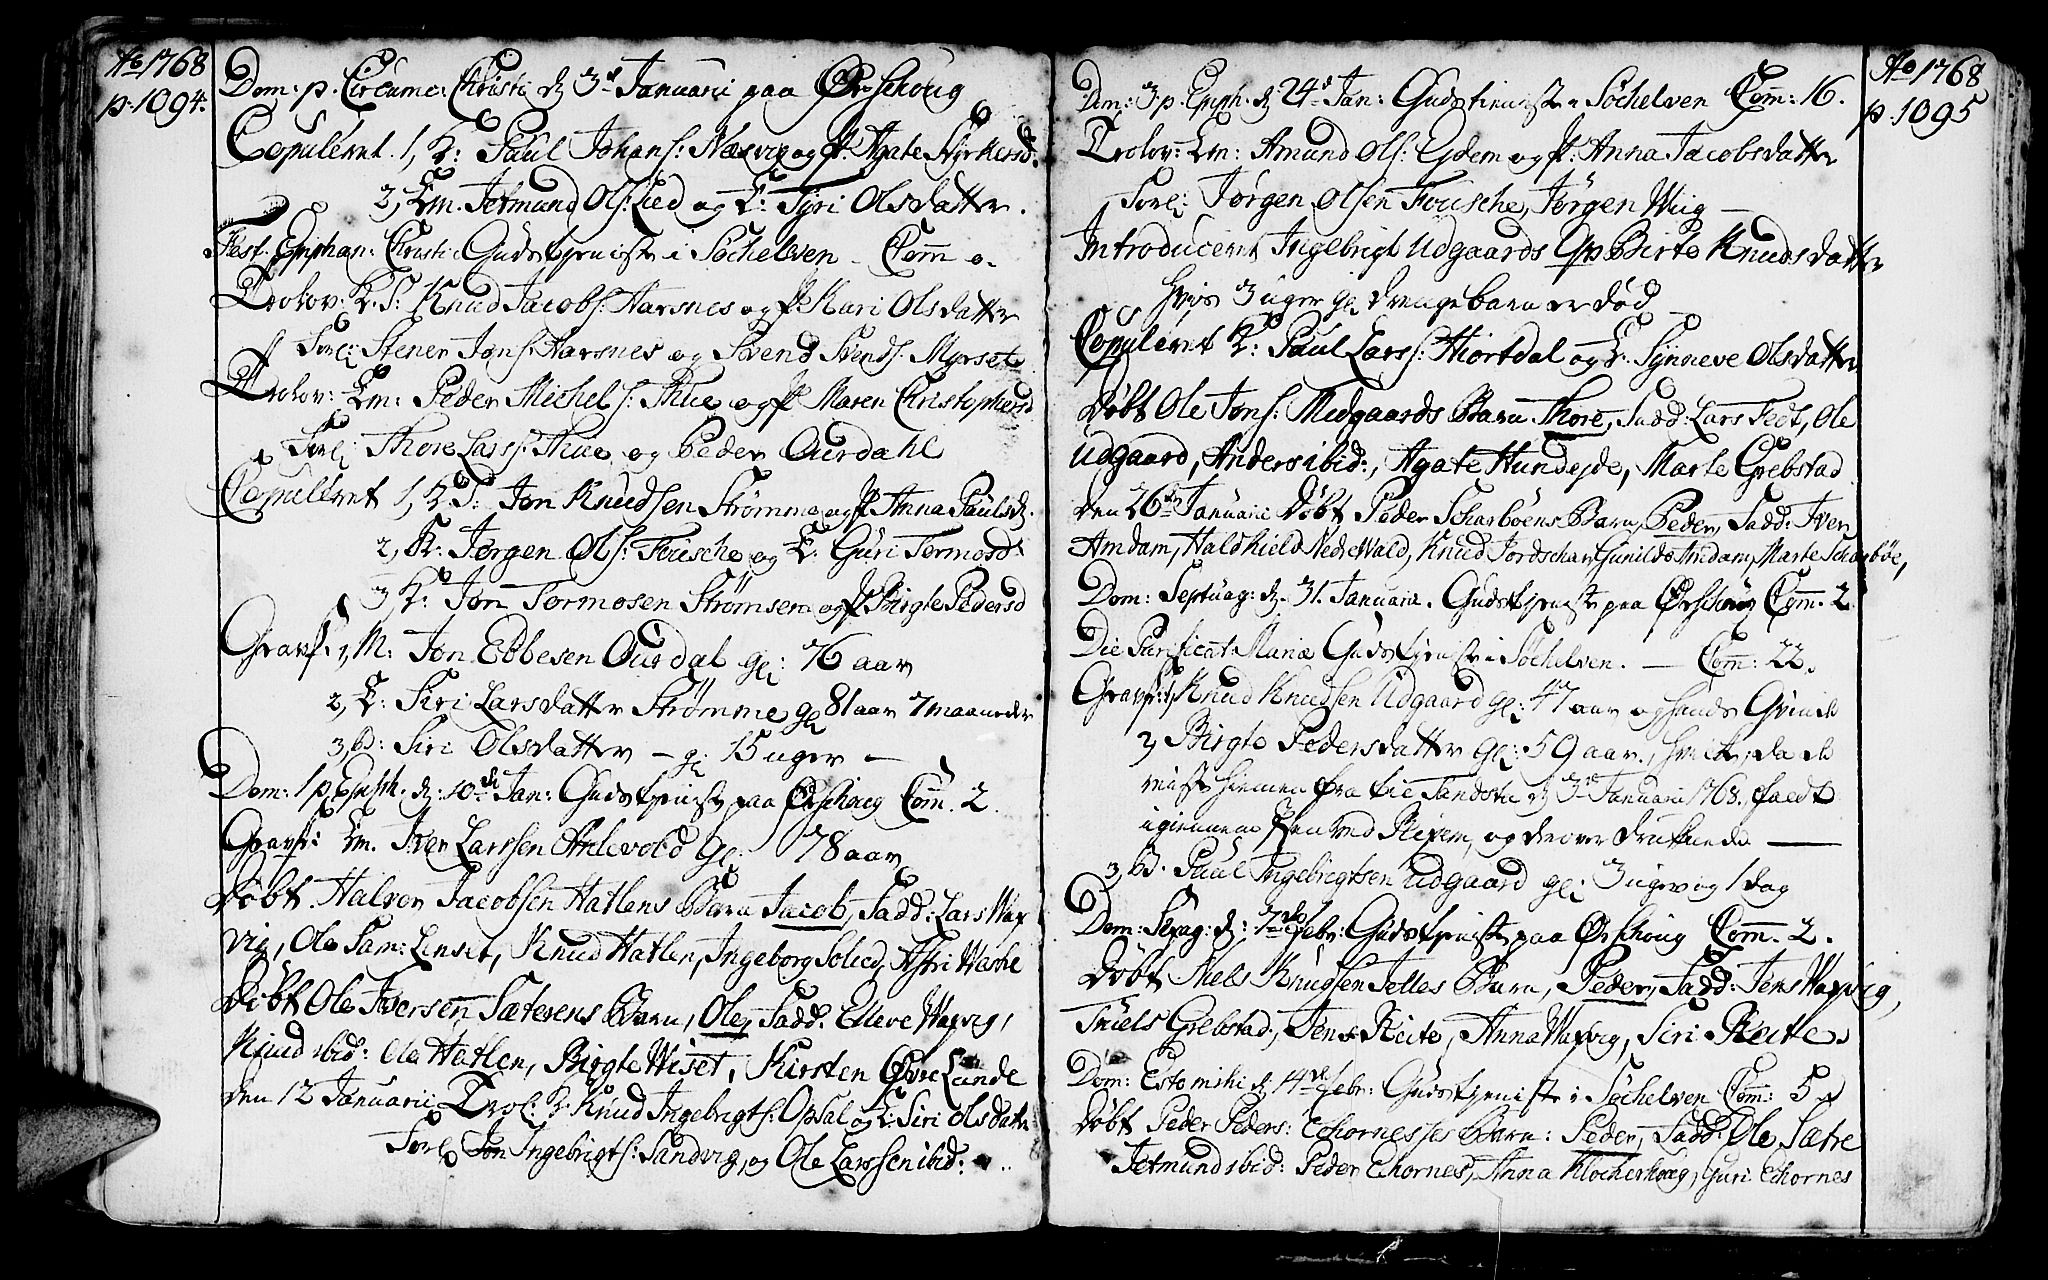 Ao 1768
p. 1094.
Dom: p. Circumc: Christi d 3de Januarii paa Ørschoug
Copuleret. 1, K: Paul Johans: Næsvig og p: Agate Styrkersd:
2, Em. Jetmund Ols: Lied og E: Syri Olsdatter.
Fest. Epiphan: Christi Gudstjeniste i Søchelven - Com 0.
Trolov: K. S: Knud Jacobs: Aarsnes og p Kari Olsdatter
Forl: Stener Jons: Aarsnes og Svend Svends: Myrset
Trolov: Em: Peder Michels: Thue og p Maren Christophersd
Forl: Thore Larss: Thue og Peder Ourdahl
Copulleret 1, K. S: Jon Knudsen Strømme og p Anna Paulsd.
2, K: Jørgen Ols: Fousche og E: Guri Tormosd:
3 K: Jon Tormosen Strømsem og p Birgte Pedersd
Gravf. 1, M: Jon Ebbesen Ourdal gl: 76 aar
2, E: Siri Larsdatter Strømme gl 81 aar 7 maaneder
3, B: Siri Olsdatter - gl 15 uger -
Dom: 1 p. Epiph. d: 10de Jan: Gudstjenist paa Ørschoug Com. 2.
Gravf: Em. Iver Larssen Anlevold gl: 78 aar
Døbt. Halvor Jacobsen Hatlens Barn Jacob, Fadd: Lars Wax
vig, Ole Sam: Linset, Knud Hatlen, Ingeborg Solied, Astri Waske
Døbt Ole Iversen Sæterens Barn, Ole, Fadd. Elleve Waxvig,
Knud ibid: Ole Hatlen, Birgte Wiset, Kirsten Øvre Lande
den 12 Januarii Trol: K. Knud Ingebrigts: Opsal og E: Siri Olsdatr
Forl: Jon Ingebrigts: Sandvig, og Ole Larssen ibid:
Ao 1768
p. 1095
Dom: 3 p. Epiph. d: 24de Jan: Gudstienist i Søchelven Com: 16.
Trolov: Em: Amund Ols: Gjdem og p: Anna Jacobsdatter
Forl: Jørgen Olsen Fousche, Jørgen Wiig -
Introduceret Ingebrigt Udgaards Qv Birte Knudsdatter
hvis 3 uger gl drengebarn er død
Copuleret K: Paul Larss: Hiortdal og E. Synneve Olsdatter
Døbt Ole Jons: Midgaards Barn Thore, Fadd: Lars Fedt, Ole
Udgaard, Anders ibid:, Agate Hundejde, Marte Grebstad
den 26de Januarii Døbt Peder Scharbøens Barn, Peder, Fadd: Iver
Amdam, Haldkield Nedrewald, Knud Jordschar Gunild Amdam, Marte Scharbøe,
Dom: Septuag: d. 31. Januarii. Gudstjenist paa Ørschoug Com. 2
Die Purificat: Mariæ Gudstjenist i Søchelven. - Com: 22.
Gravf: 1, Knud Knudsen Udgaard gl: 47 aar og hands Qvinde
2, Birgte Pedersdatter gl: 59 aar, hvilke, da de
reiste hiemen fra til Sandste d 3de Januarii 1768. faldt
igiennem Isen ved Reixen, og derover druknede -
3, B. Paul Ingebrigtsen Udgaard gl: 3 uger og 1 dag
Dom: Sexag: d: 7de febr: Gudstjenist paa Ørschoug Com. 2.
Døbt Niels Knudsen Telles Barn, Peder, Fadd: Jens Waxvig,
Truels Grebstad, Jens Reite, Anna Waxvig, Siri Reite.
Dom: Estomihi d: 14de febr: Gudstjenist i Søchelven Com: 5
Døbt Peder Peders: Echornesses Barn: Peder, Fadd: Ole Sætre
Jetmund ibid: Peder Echornes, Anna Klocherhoug, Guri Echornes